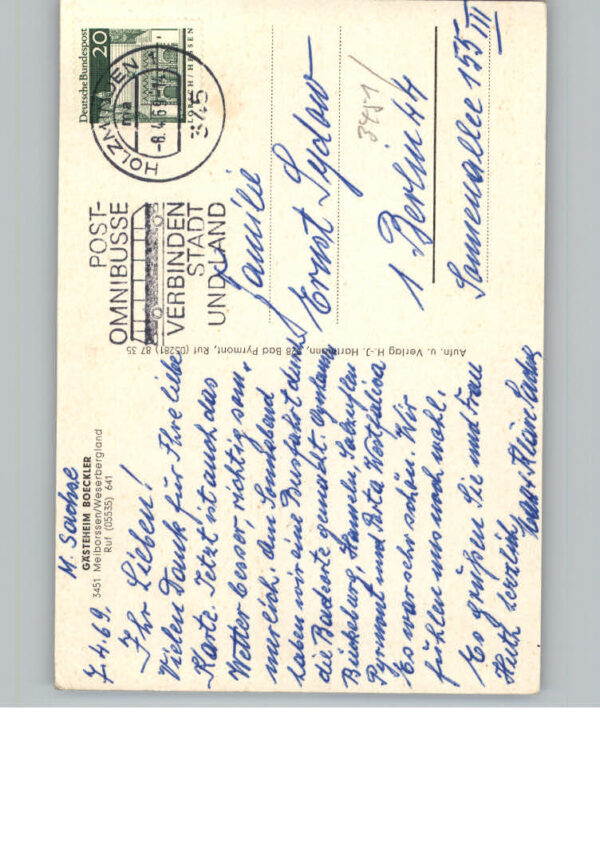 M. Sachse
GÄSTEHEIM BOECKLER
3451 Meiborssen/Weserbergland
Ruf (05535) 641
7.4.69.
Ihr Lieben!
Vielen Dank für Ihre liebe
Karte. Jetzt ist auch das
Wetter besser, richtig son-
nig
haben wir eine Busfahrt durch
die Badeorte gemacht.
Bückeburg, Hameln, Salzuflen
Pyrmont und Porta Westfalica
Es war sehr schön. Wir
fühlen uns noch wohl.
Es grüßen Sie und Frau
herzlich
Aufn. u. Verlag H.-J. Hartmann, 328 Bad Pyrmont, Ruf (05281) 87 35
Deutsche Bundespost
20
LORSCH/HESSEN
HOLZMINDEN
-8.4.69
345
POST-
OMNIBUSSE
VERBINDEN
STADT
UND LAND
Familie
Ernst Lydow
3451/
1 Berlin 44
Sonnenallee 155 III